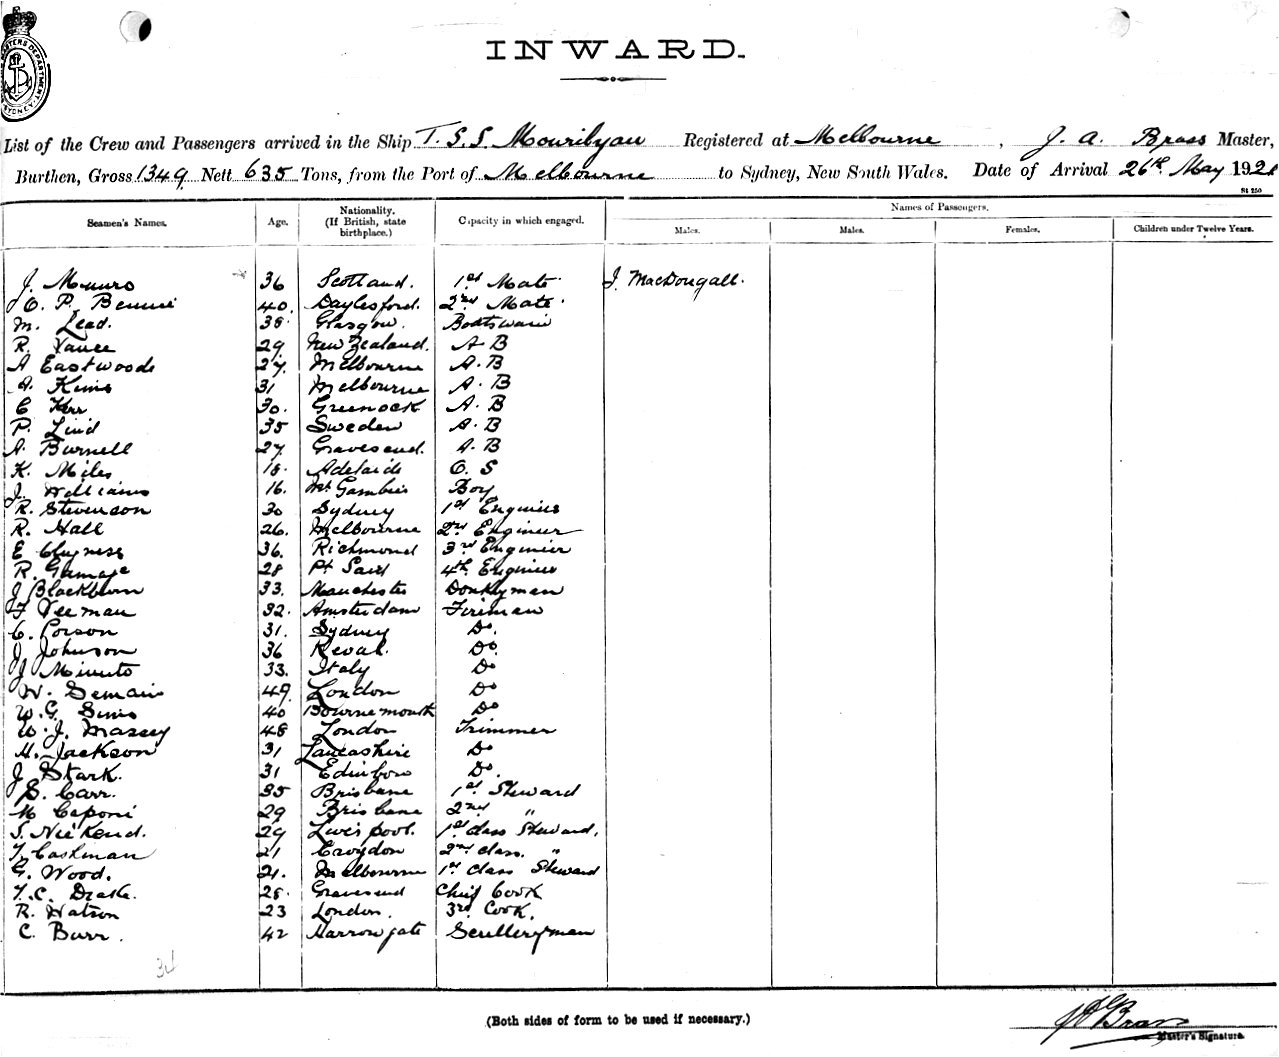 INWARD.
MASTERS DEPARTMENT SYDNEY
List of the Crew and Passengers arrived in the Ship T.S.S. Mourilyan Registered at Melbourne, J. A. Brass Master,
Burthen, Gross 1349 Nett 635 Tons, from the Port of Melbourne to Sydney, New South Wales. Date of Arrival 26th May 192
St 250
Seamen's Names. Age. Nationality. (If British, state birthplace.) Capacity in which engaged. Names of Passengers.
Males. Males. Females. Children under Twelve Years.
J. Munro 36 Scotland. 1st Mate J. MacDougall.
P. Bennie 40. Daylesford. 2nd Mate
M. Lead. 38 Glasgow. Boatswain
R. Vance 29 New Zealand. A B
A Eastwoods 27. Melbourne A. B
A. Kims 31 Melbourne A. B
C Kerr 30. Greenock A. B
P. Lind 35 Sweden A. B
A. Burnell 27. Gravesend. A. B
K. Miles 18. Adelaide O. S
J. Williams 16. Mt Gambier Boy
R. Stevenson 30 Sydney 1st Engineer
R. Hall 26. Melbourne 2nd Engineer
E 36. Richmond 3rd Engineer
R. Gamage 28 Pt Said 4th Engineer
J Blackburn 33. Manchester Donkeyman
F Veeman 32. Amsterdam Fireman
C. Corson 31. Sydney Do.
J Johnson 36 Reval. Do.
J Minuto 33. Italy Do
W. Semain 49. London Do
W. G. Sims 40 Bournemouth Do
W. J. Massey 48 London Trimmer
H. Jackson 31 Lancashire Do
J Stark. 31 Edinboro Do.
S. Carr. 35 Brisbane 1st Steward
M Caponi 29 Brisbane 2nd "
S. 29 Liverpool. 1st class Steward.
T. Cashman 21 Croydon 2nd class. "
G. Wood. 21. Melbourne 1st class Steward
T. C. Drake. 28. Gravesend Chief Cook
R. Watson 23 London. 3rd Cook.
C. Burr. 42 Harrowgate Sculleryman
(Both sides of form to be used if necessary.)
J A Brass
Master's Signature.